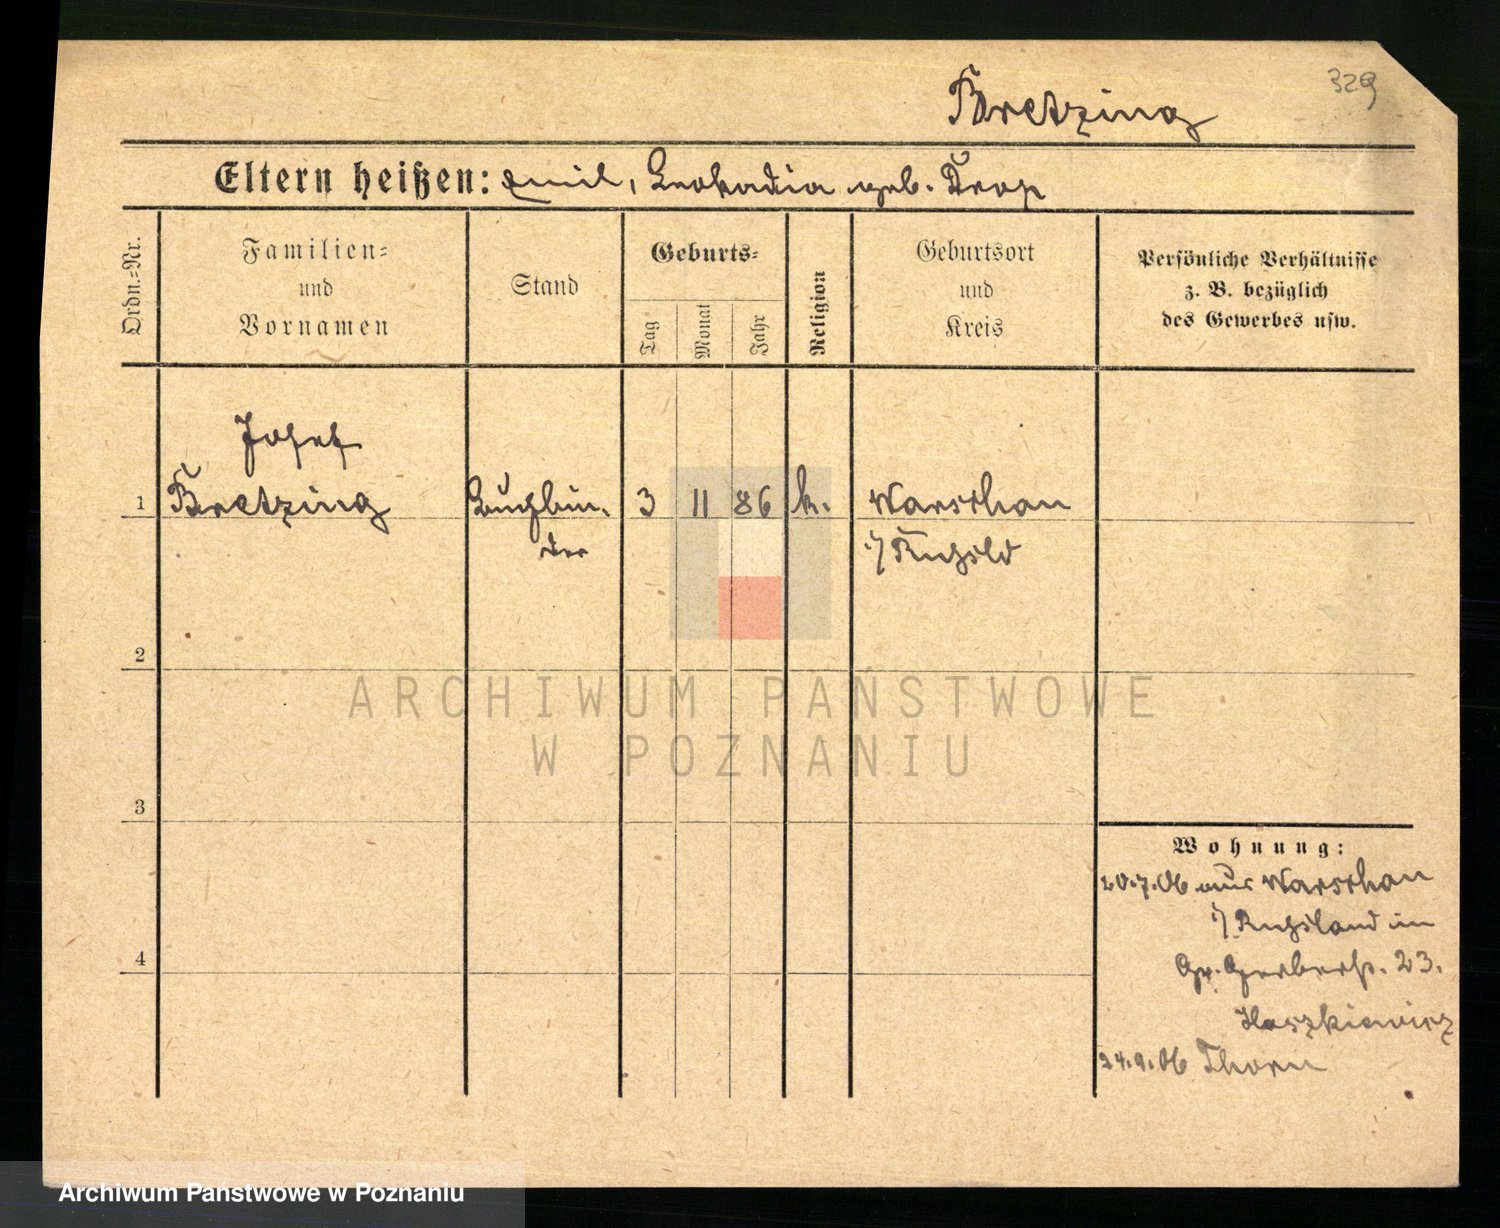 329
Bretzing
Eltern heißen: Emil, Leokadia geb. Drop
Ordn.=Nr.
Familien=
und
Vornamen
Stand
Geburts=
Tag
Monat
Jahr
Religion
Geburtsort
und
Kreis
Persönliche Verhältnisse
z. B. bezüglich
des Gewerbes usw.
Josef
1 Bretzing Buchbin. 3 11 86 k. Warschau
der i/ Rußld
2
3
4
ARCHIWUM PAŃSTWOWE
W POZNANIU
Wohnung:
20.7.06 aus Warschau
i/ Rußland in
Gr. Gerberstr. 23.
24.9.06 Thorn
Archiwum Państwowe w Poznaniu